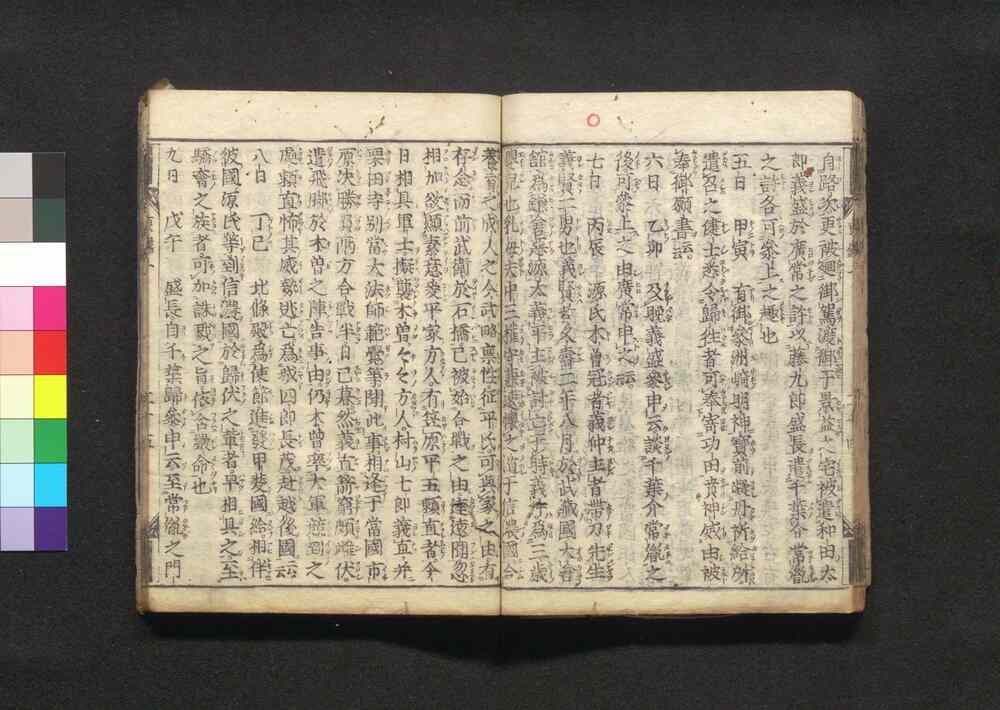 自路次更被廻御駕渡御于景義之宅被遣和田太
郎義盛於廣常之許以藤九郎盛長遣千葉介常胤
之許各可參上之趣也
五日　甲寅　有御參洲崎明神寶前凝丹祈給所
遣召之健士悉令歸往者可奉寄功田賁神威由被
奉御願書云云
六日　乙卯　及晩義盛參申云談千葉介常胤之
後可參上之由廣常申之云云
七日　丙辰　源氏木曾冠者義仲主者帶刀先生
義賢二男也義賢去久壽二年八月於武藏國大倉
舘爲鎌倉惡源太義平主被討亡于時義仲爲三歳
嬰兒也乳母夫中三權守兼遠懷之遁于信濃國令
養育之成人之今武略禀性征平氏可興家之由有
存念而前武衛於石橋已被始合戰之由達遠聞忽
相加欲顯素意爰平家方人有笠原平五頼直者今
日相具軍士擬襲木曾々々方人村山七郎義直并
栗田寺別當大法師範覺等聞此事相逢于當國市
原決勝負兩方合戰半日已暮然義直箭窮頗雌伏
遣飛脚於木曾之陣告事由仍木曾率大軍競到之
處頼直怖其威勢逃亡爲城四郎長茂赴越後國云云
八日　丁巳　北條殿爲使節進發甲斐國給相伴
彼國源氏等到信濃國於歸伏之輩者早相具之至
驕奢之族者可加誅戮之旨依含嚴命也
九日　戊午　盛長自千葉歸參申云至常胤之門